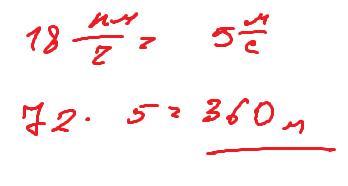 18 км/ч = 5 м/с
72 · 5 = 360 м